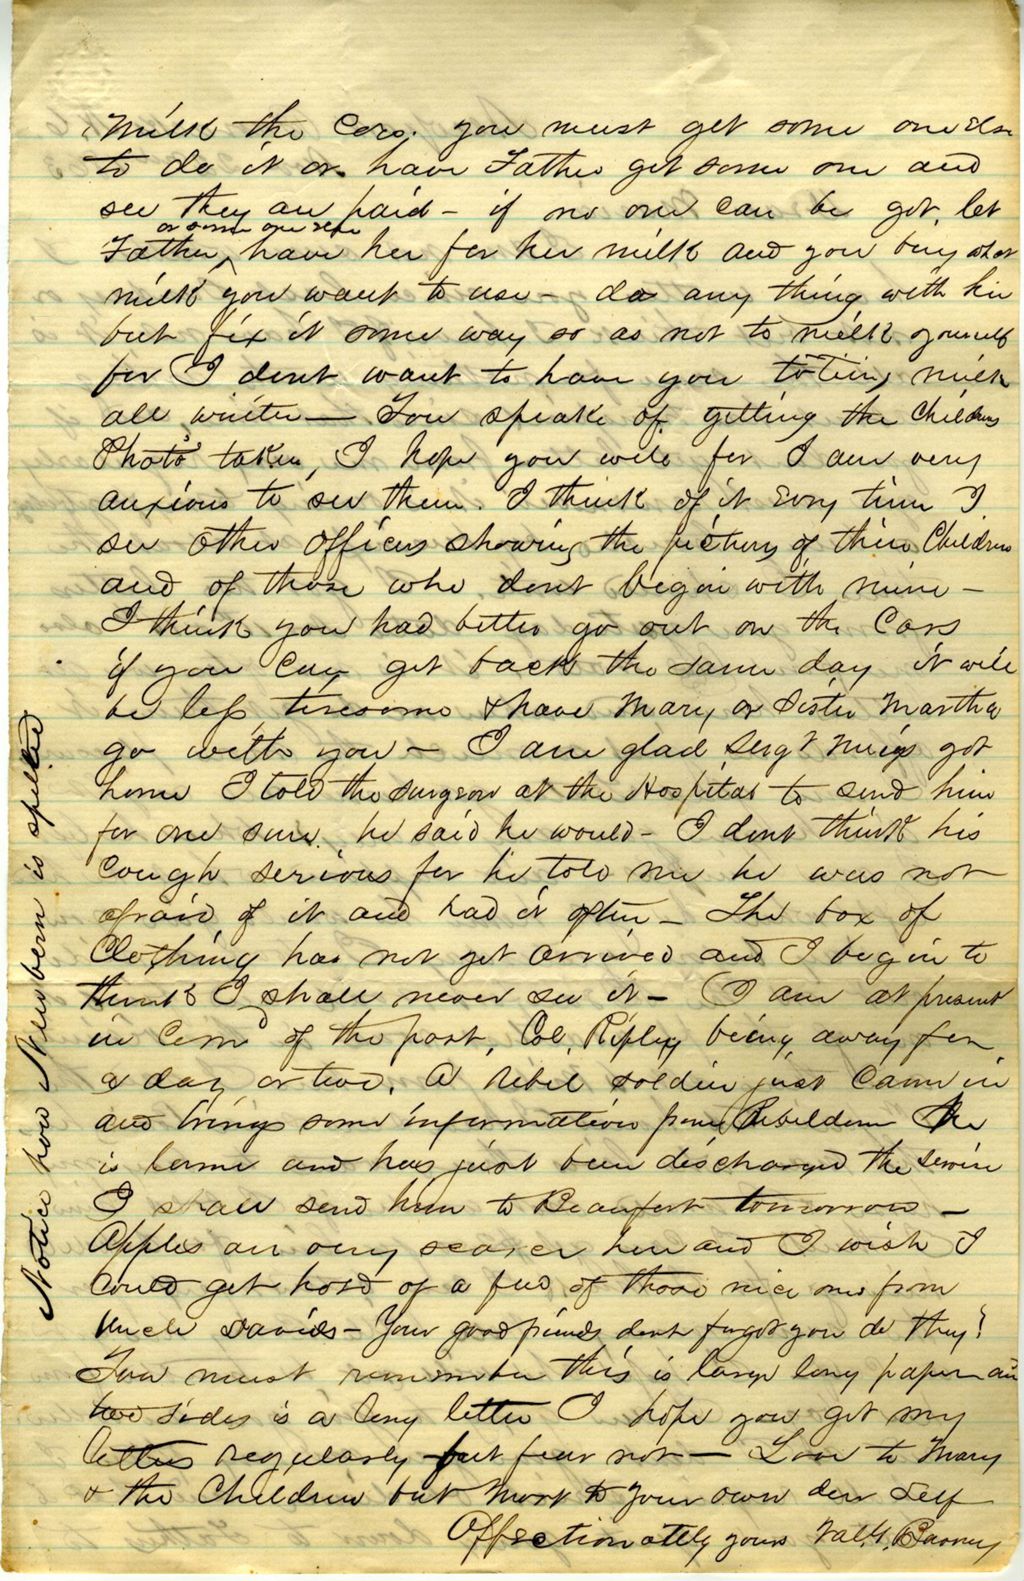 Milk the Cow. you must get some one else
to do it or have Father get some one and
see they are paid - if no one can be got, let
or some one else
Father ^ have her for her milk and you buy what
milk you want to use - do any thing with her
but fix it some way so as not to milk yourself
for I dont want to have you toting milk
all winter - You speak of getting the Childrens
Photo's taken, I hope you will for I am very
anxious to see them. I think of it every time I
see other officers showing the pictures of their Children
and of those who dont begin with mine -
I think you had better go out on the Cars
if you can get back the same day it will
be less tiresome & have Mary or Sister Martha
go with you - I am glad Sergt got
home I told the surgeon at the Hospital to send him
for one sure. he said he would - I dont think his
cough serious for he told me he was not
afraid of it and had it often - The box of
Clothing has not yet arrived and I begin to
think I shall never see it - I am at present
in Com of the post, Col. Ripley being away for
a day or two. A Rebel soldier just came in
and brings some information from Rebeldom He
is lame and has just been discharged the service
I shall send him to Beaufort tomorrow -
Apples are very scarce here and I wish I
could get hold of a few of those nice ones from
Uncle Davids - Your good friends dont forget you do they?
You must remember this is large long paper and
two sides is a long letter I hope you get my
letters regularly but fear not - Love to Mary
& the Children but most to your own dear self
Affectionately yours Val. G. Barney
Notice how Newbern is spelled